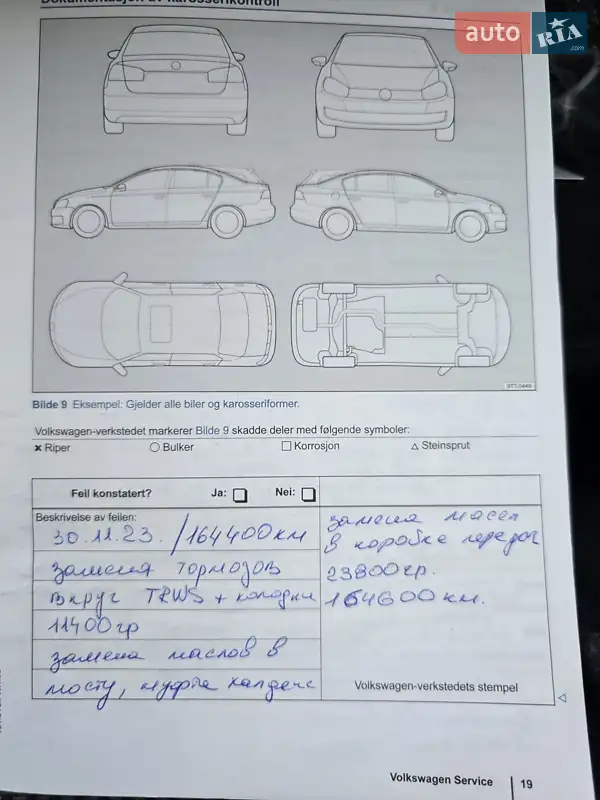 Dokumentasjon av karosserikontroll
auto RIA .com
Bilde 9 Eksempel: Gjelder alle biler og karosseriformer.
Volkswagen-verkstedet markerer Bilde 9 skadde deler med følgende symboler:
× Riper ○ Bulker □ Korrosjon △ Steinsprut
Feil konstatert? Ja: Nei:
Beskrivelse av feilen:
30.11.23. / 164400км
замена тормозов
вкруг TRWS + колодки
11400гр
замена маслов в
мосту, муфта халдекс
замена масел
в коробке передач
23800гр.
164600км.
Volkswagen-verkstedets stempel
Volkswagen Service 19